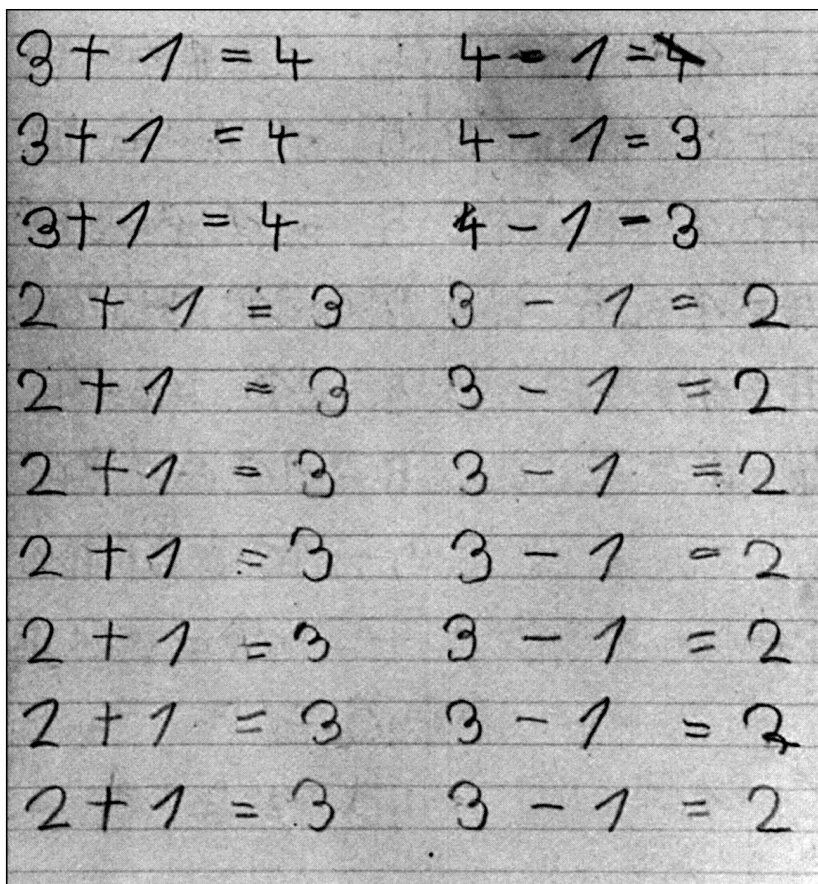 3 + 1 = 4 4 - 1 = 4
3 + 1 = 4 4 - 1 = 3
3 + 1 = 4 4 - 1 = 3
2 + 1 = 3 3 - 1 = 2
2 + 1 = 3 3 - 1 = 2
2 + 1 = 3 3 - 1 = 2
2 + 1 = 3 3 - 1 = 2
2 + 1 = 3 3 - 1 = 2
2 + 1 = 3 3 - 1 = 2
2 + 1 = 3 3 - 1 = 2